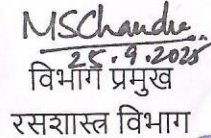 MSChandu
25.9.2025
विभाग प्रमुख
रसशास्त्र विभाग